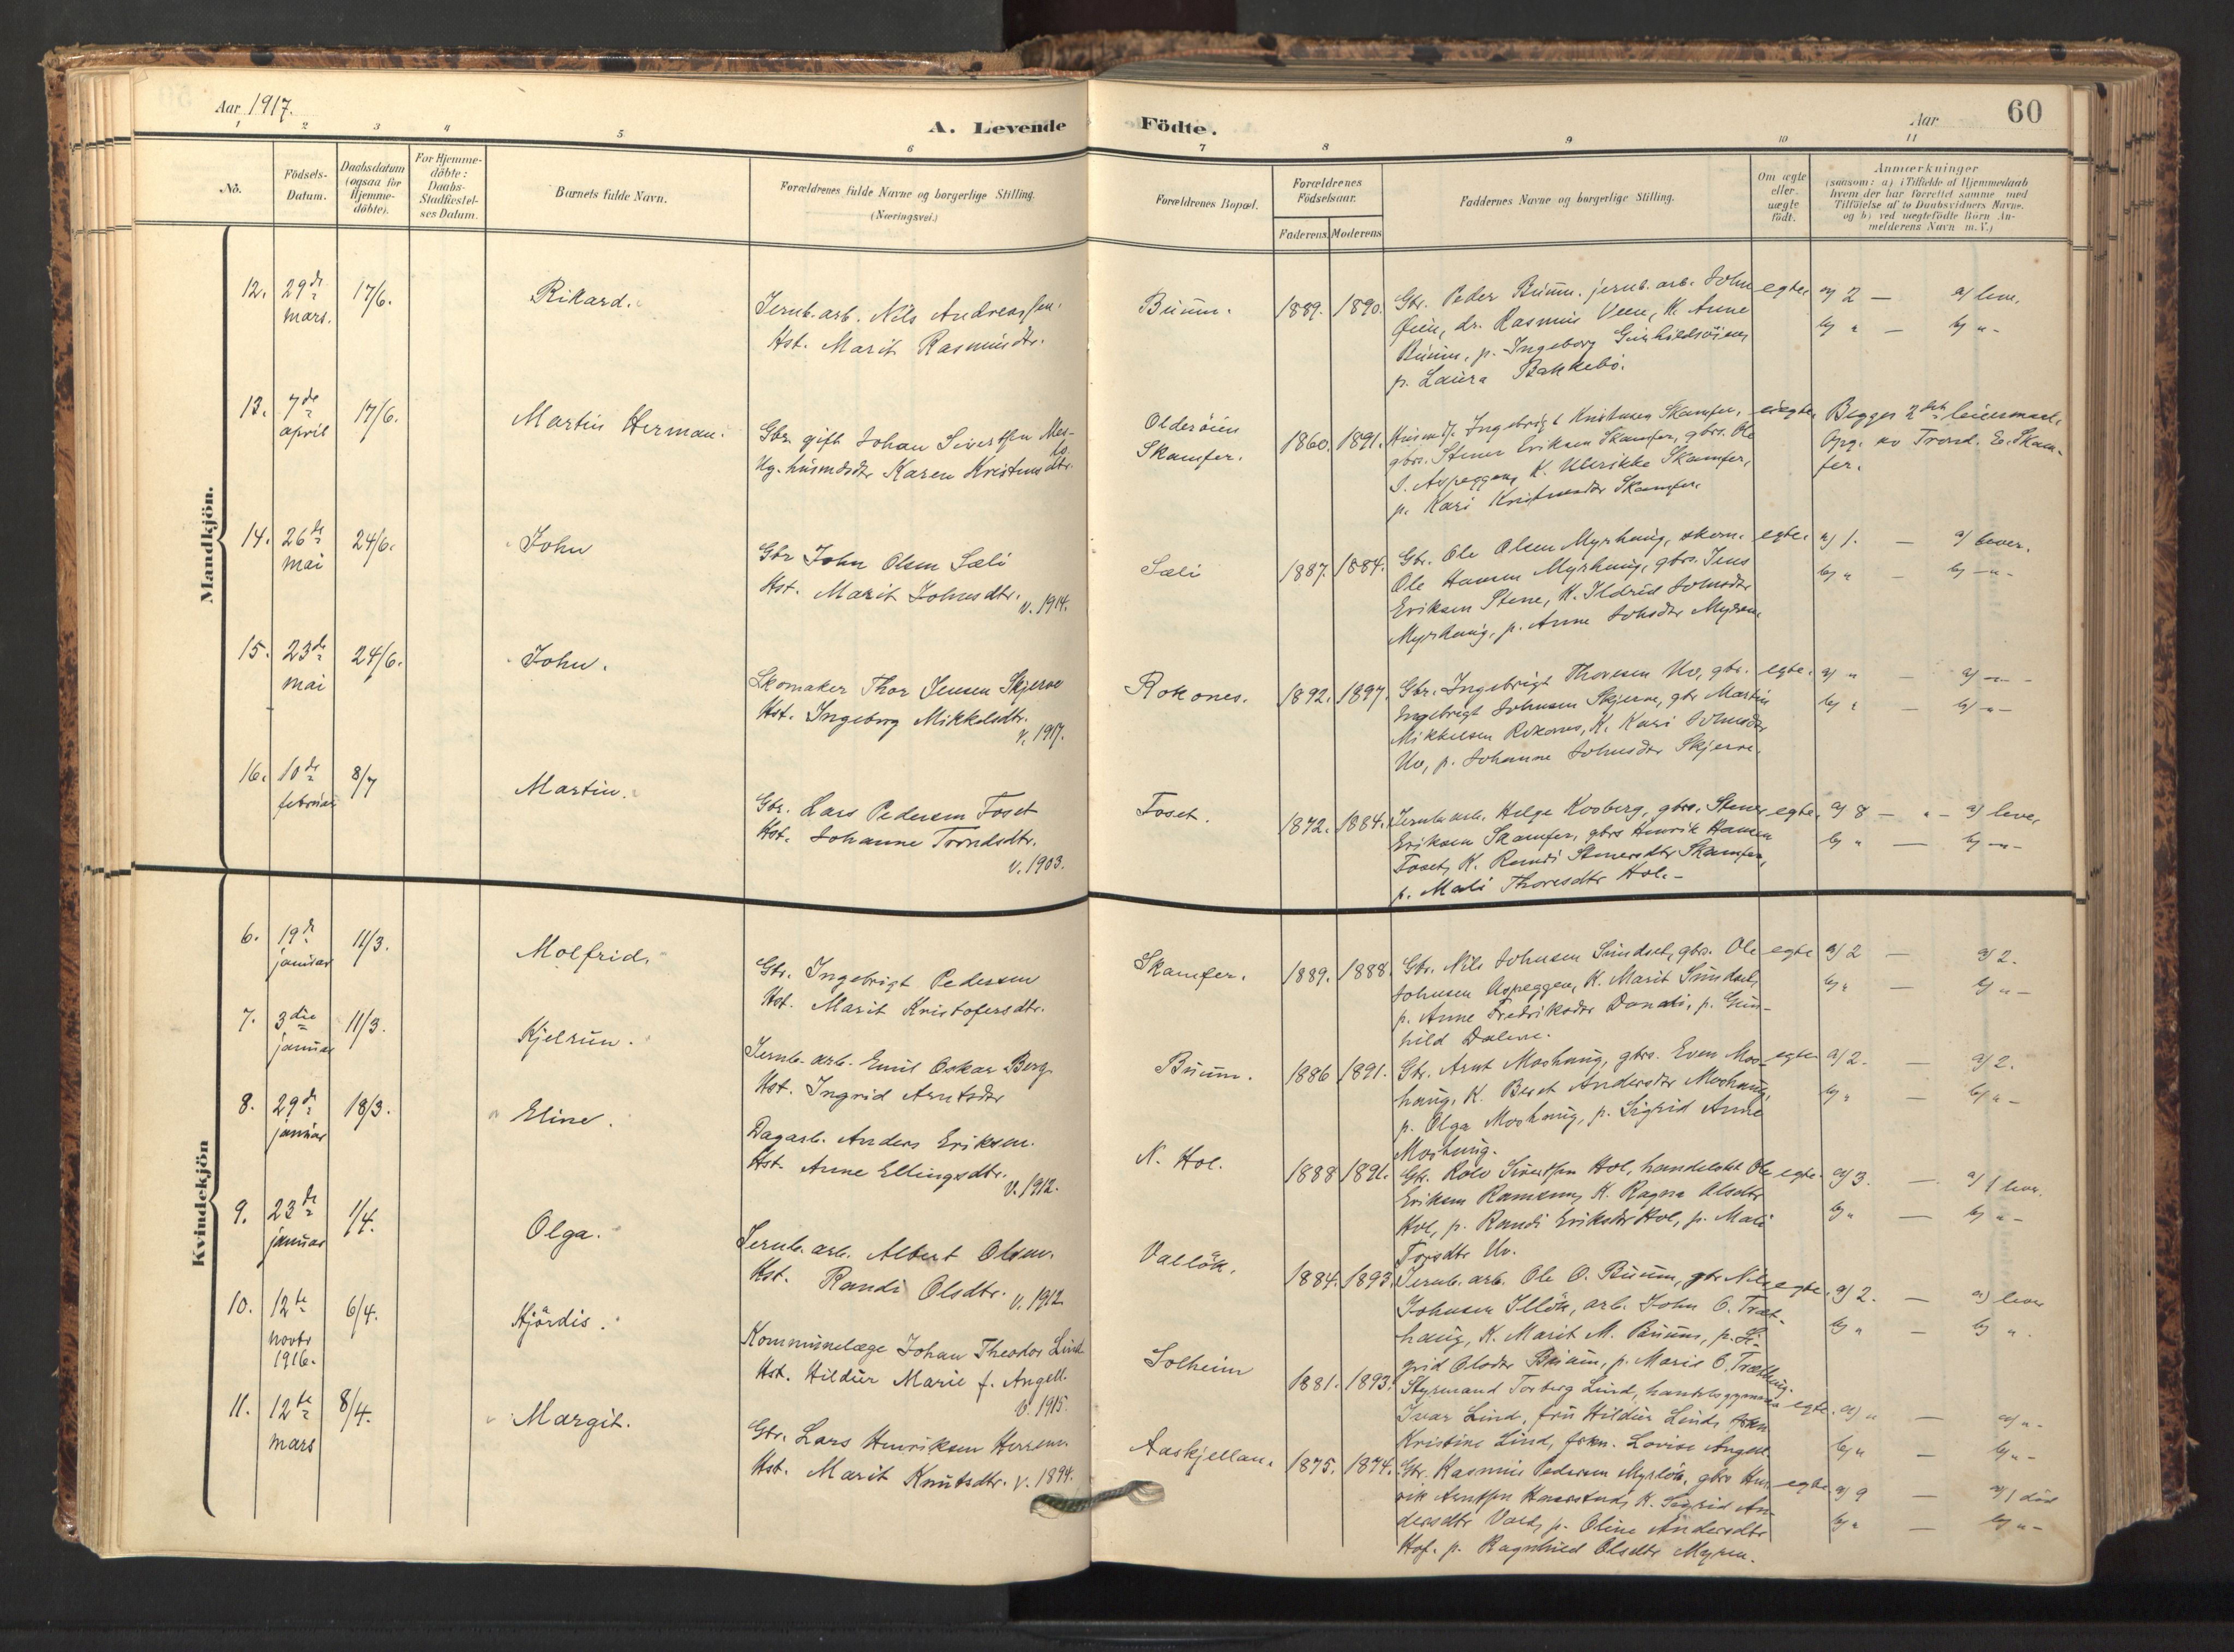 Aar 1917.
A. Levende
Födte.
Aar
60
1 2 3 4 5 6 7 8 9 10 11
No.
Födsels-
Datum.
Daabsdatum
(ogsaa for
Hjemme-
döbte).
For Hjemme-
döbte:
Daabs-
Stadfæstel-
ses Datum.
Barnets fulde Navn.
Forældrenes fulde Navne og borgerlige Stilling.
(Næringsvei.)
Forældrenes Bopæl.
Forældrenes
Födselsaar.
Faderens. Moderens
Faddernes Navne og borgerlige Stilling.
Om ægte
eller
uægte
födt.
Anmærkninger
(saasom: a) i Tilfælde af Hjemmedaab
hvem der har forrettet samme med
Tilföielse af to Daabsvidners Navne.
og b) ved uægtefödte Börn An-
melderens Navn m.V.)
Mandkjön.
12. 29de mars. 17/6. Rikard.
Jernb. arb. Nils Andreassen.
Hst. Marit Rasmusdtr.
Buum. 1889. 1890.
Gbr. Peder Buum. jernb. arb. John
Øien, dr. Rasmus Veen, K. Anne
Buum, p. Ingeborg Gunhildsöien
p. Laura Bakkebö.
egte. a) 2 — a) leve.
b) " — b) " -
13. 7de april 17/6. Martin Herman.
Gbr. gift Johan Sivertsen Mes-
lo.
Ug. husmdsdtr Karen Kristensdtr.
Olderöien
Skamfer.
1860. 1891.
Husmd. Ingebrigt Kristensen Skamfer,
gbrs. Stener Eriksen Skamfer, gbrs. Ole
J. Aspeggen, K. Ulrikke Skamfer,
p. Kari Kristensdtr Skamfer.
uegte. Begges 2det leiermaal.
Opg. av Trond. E. Skam-
fer.
14. 26de mai 24/6. John
Gbr John Olsen Sæli
Hst. Marit Johnsdtr.
v. 1914.
Sæli 1887. 1884.
Gbr. Ole Olsen Myrhaug, skom.
Ole Hansen Myrhaug, gbrs. Jens
Eriksen Stene, K. Ildrid Johnsdtr
Myrhaug, p. Anne Johsdtr Myren.
egte. a) 1. — a) lever.
b) " — b) — " -
15. 23de mai 24/6. John.
Skomaker Thor Jensen Skjerve
Hst. Ingeborg Mikkelsdtr.
v. 1917.
Rokones. 1892. 1897.
Gbr. Ingebrigt Thoresen Uv, gbr.
Ingebrigt Johnsen Skjerve, gbr Martin
Mikkelsen Rokones, K. Kari Johnsdtr
Uv, p. Johanne Johnsdtr Skjerve.
egte. a) " — a) — " -
b) " — b) — " -
16. 10de februar 8/7 Martin.
Gbr. Lars Pedersen Foset
Hst. Johanne Trondsdtr.
v. 1903.
Foset. 1872. 1884.
Jernb. arb. Helge Kosberg, gbrs. Stener
Eriksen Skamfer, gbrs Henrik Hansen
Foset, K. Randi Stenersdtr Skamfer,
p. Mali Thoresdtr Hol. -
egte. a) 8 — " — a) lever
b) " — b) — " -
Kvindekjön
6. 19de januar 11/3. Molfrid.
Gbr. Ingebrigt Pedersen
Hst. Marit Kristofersdtr.
Skamfer. 1889. 1888.
Gbr. Nils Johnsen Sundset, gbrs. Ole
Johnsen Aspeggen, K. Marit Sundset,
p. Anne Fredriksdtr Donali, p. Gun-
hild Dalene.
egte a) 2 — a) 2.
b) " — b) " -
7. 3die januar 11/3. Kjelrun.
Jernb. arb. Emil Oskar Berg
Hst. Ingrid Arntsdtr
Buum. 1886 1891.
Gbr. Arnt Moshaug, gbrs. Even Mos-
haug, K. Beret Andersdtr Moshaug,
p. Olga Moshaug, p. Sigrid Anne
Moshaug.
egte a) 2. — a) 2.
b) " — b) " -
8. 29de januar 18/3. Eline.
Dagarb. Anders Eriksen.
Hst. Anne Ellingsdtr.
v. 1912.
N. Hol. 1888 1891.
Gbr. Rolv Sivertsen Hol, handelsbt Ole
Eriksen Ramsem, K. Ragna Olsdtr
Hol, p. Randi Eriksdtr Hol, p. Mali
Torsdtr Uv.
egte. a) 3. — a) 1 lever.
b) " — b) " -
9. 23de januar 1/4. Olga.
Jernb. arb. Albert Olsen.
Hst. Randi Olsdtr. v. 1912
Vallök. 1884. 1893.
Jernb. arb. Ole O. Buum, gbr. Nils
Johnsen Illök, arb. John O. Træt-
haug, K. Marit M. Buum, p. Si-
grid Olsdtr Buum, p. Marie O. Trætthaug.
egte. a) 2. — a) lever
b) " — b) ".
10. 12te novbr 1916. 6/4. Hjördis.
Kommunelæge Johan Theodor Lind
Hst. Hildur Marie f. Angell.
v. 1915.
Solheim 1881. 1893.
Styrmand Torberg Lind,
Ivar Lind, fru Hildur Lind, frkn
Kristine Lind, frkn. Lovise Angell.
egte. a) " — a) " -
b) " — b) " -
11. 12te mars 8/4. Margit.
Gbr. Lars Henriksen Herrem.
Hst. Marit Knutsdtr. v. 1894.
Aaskjellan. 1875. 1874.
Gbr. Rasmus Pedersen Myrlök, gbrs Hen-
rik Arntsen K. Sigrid An-
dersdtr Vold, p. Oline Andersdtr
Hof. p. Ragnhild Olsdtr Myren.
egte. a) 9 — a) 1 död
b) " — b) " -